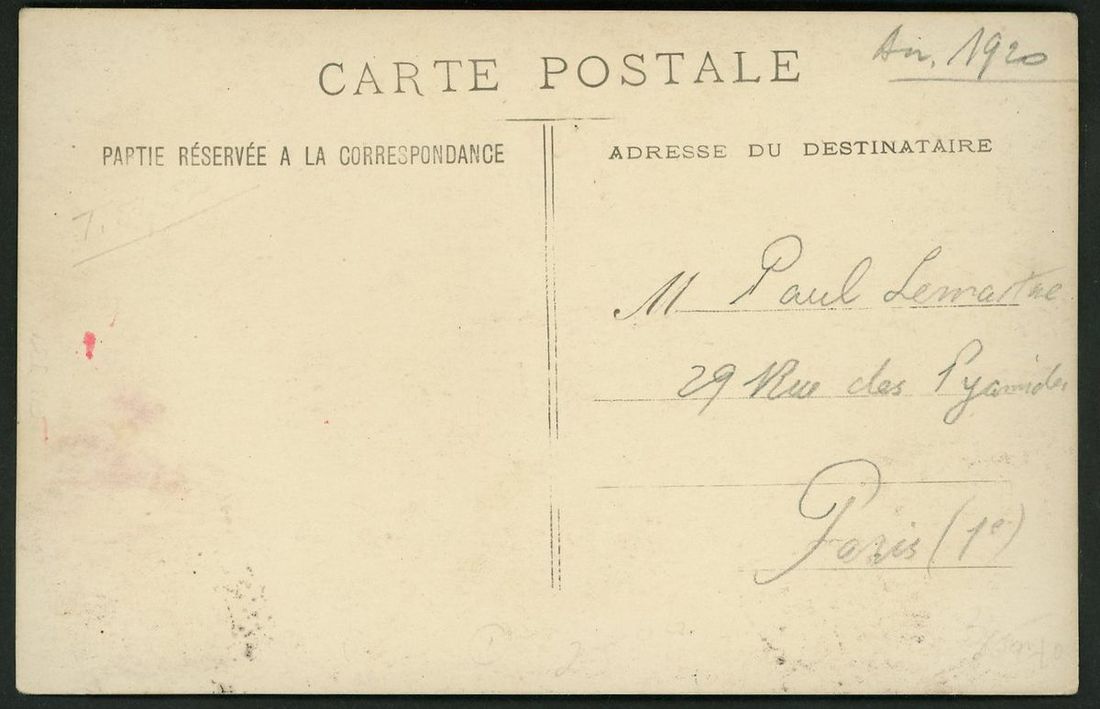 CARTE POSTALE
1920
PARTIE RÉSERVÉE A LA CORRESPONDANCE
ADRESSE DU DESTINATAIRE
M Paul Lemaitre
29 Rue des Pyamides
Paris (1e)